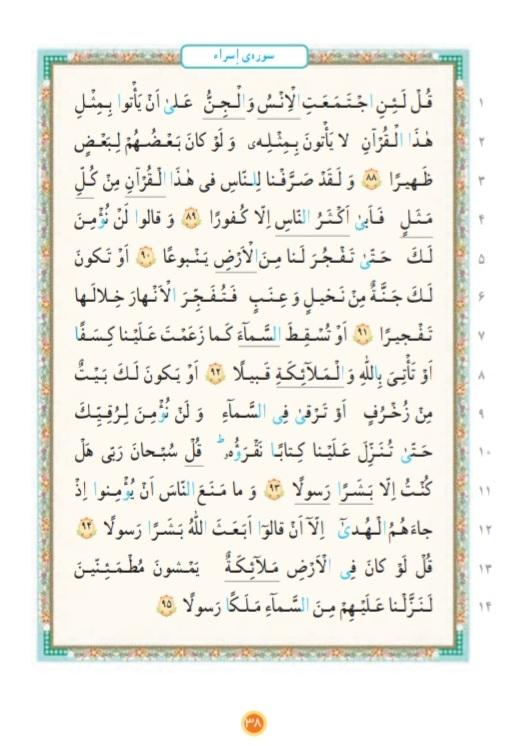 سوره‌ی إسراء
۱ قُل لَئِنِ اجْتَمَعَتِ الْاِنْسُ وَ الْجِنُّ عَلىٰ اَنْ يَأْتوا بِمِثْلِ
۲ هٰذَا الْقُرْآنِ لا يَأْتونَ بِمِثْلِهٖ وَ لَوْ كانَ بَعْضُهُمْ لِبَعْضٍ
۳ ظَهيرًا ۸۸ وَ لَقَدْ صَرَّفْنا لِلنّاسِ فى هٰذَا الْقُرْآنِ مِنْ كُلِّ
۴ مَثَلٍ فَاَبىٰ اَكْثَرُ النّاسِ اِلّا كُفورًا ۸۹ وَ قالوا لَنْ نُؤْمِنَ
۵ لَكَ حَتّىٰ تَفْجُرَ لَنا مِنَ الْاَرْضِ يَنْبوعًا ۹۰ اَوْ تَكونَ
۶ لَكَ جَنَّةٌ مِنْ نَخيلٍ وَ عِنَبٍ فَتُفَجِّرَ الْاَنْهارَ خِلالَها
۷ تَفْجيرًا ۹۱ اَوْ تُسْقِطَ السَّمآءَ كَما زَعَمْتَ عَلَيْنا كِسَفًا
۸ اَوْ تَأْتِىَ بِاللّٰهِ وَ الْمَلآئِكَةِ قَبيلًا ۹۲ اَوْ يَكونَ لَكَ بَيْتٌ
۹ مِنْ زُخْرُفٍ اَوْ تَرْقىٰ فِى السَّمآءِ وَ لَنْ نُؤْمِنَ لِرُقِيِّكَ
۱۰ حَتّىٰ تُنَزِّلَ عَلَيْنا كِتابًا نَقْرَؤُهٗ ۗ قُلْ سُبْحانَ رَبّى هَلْ
۱۱ كُنْتُ اِلّا بَشَرًا رَسولًا ۹۳ وَ ما مَنَعَ النّاسَ اَنْ يُؤْمِنوا اِذْ
۱۲ جاءَهُمُ الْهُدىٰٓ اِلّآ اَنْ قالوٓا اَبَعَثَ اللّٰهُ بَشَرًا رَسولًا ۹۴
۱۳ قُل لَوْ كانَ فِى الْاَرْضِ مَلآئِكَةٌ يَمْشونَ مُطْمَئِنّينَ
۱۴ لَنَزَّلْنا عَلَيْهِمْ مِنَ السَّمآءِ مَلَكًا رَسولًا ۹۵
۳۸